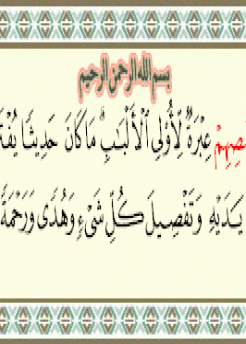 بسم الله الرحمن الرحيم
صِهِمْ عِبْرَةٌ لِّأُوْلِي الْأَلْبَابِ ۗ مَا كَانَ حَدِيثًا يُفْتَ
يَدَيْهِ وَتَفْصِيلَ كُلِّ شَيْءٍ وَهُدًى وَرَحْمَةً